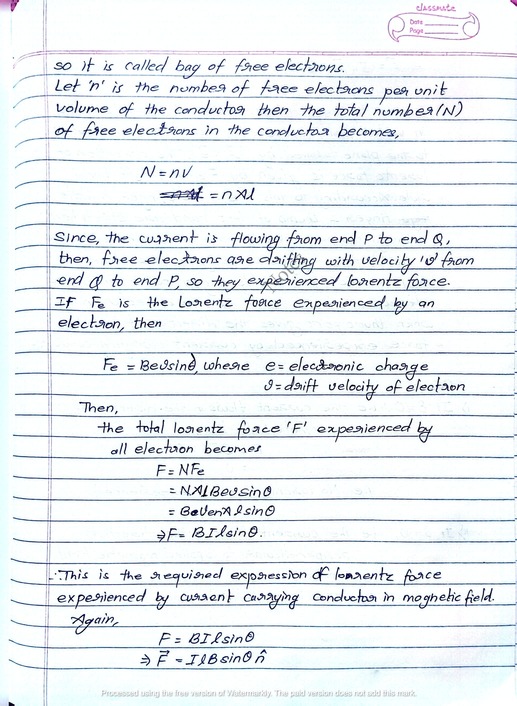 classmate
Date
Page
so it is called bag of free electrons.
Let 'n' is the number of free electrons per unit
volume of the conductor then the total number (N)
of free electrons in the conductor becomes,
N = nV
= nAl
Since, the current is flowing from end P to end Q,
then, free electrons are drifting with velocity 'v' from
end Q to end P, so they experienced lorentz force.
If Fe is the Lorentz force experienced by an
electron, then
Fe = Bevsinθ, where e = electronic charge
v = drift velocity of electron
Then,
the total lorentz force 'F' experienced by
all electron becomes
F = NFe
= NAlBevsinθ
= BevenAlsinθ
⇒ F = BIlsinθ.
∴ This is the required expression of lorentz force
experienced by current carrying conductor in magnetic field.
Again,
F = BIlsinθ
⇒ F⃗ = IlBsinθ n̂
Processed using the free version of Watermarkly. The paid version does not add this mark.